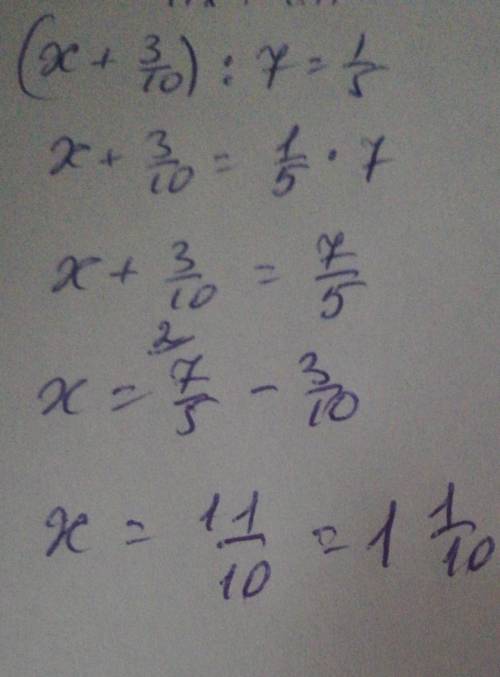 (x + 3/10) : 7 = 1/5
x + 3/10 = 1/5 · 7
x + 3/10 = 7/5
x = ²⁄ 7/5 - 3/10
x = 11/10 = 1 1/10